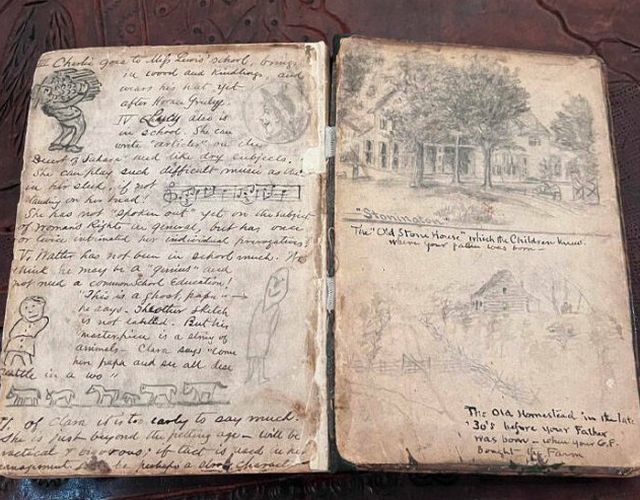 III Charlie goes to Miss Lewis' school, brings
in wood and kindlings, and
wears his hat yet
after Horace Greeley.
IV Lully also is
in school. She can
write "articles" on the
Desert of Sahara and like dry subjects.
She can play such difficult music as this
in her sleep, if not
standing on her head!
She has not "spoken out" yet on the subject
of Woman's Rights in general, but has once
or twice intimated her individual prerogatives.
V, Walter has not been in school much. We
think he may be a "Genius" and
not need a common School Education!
"This is a ghost, papa" →
he says. The other sketch
is not labelled. But his
masterpiece is a string of
animals — Clara says "Come
here papa and see all dese
cattle in a wo"
VI. of Clara it is too early to say much.
She is just beyond the petting age — will be
practical & onorous; if tact is used in her
management, she'll be perhaps a strong character
"Stonington"
The "Old Stone House" which the Children knew.
where your father was born —
The Old Homestead in the late
'30's before your Father
was born — when your G.F.
bought the Farm